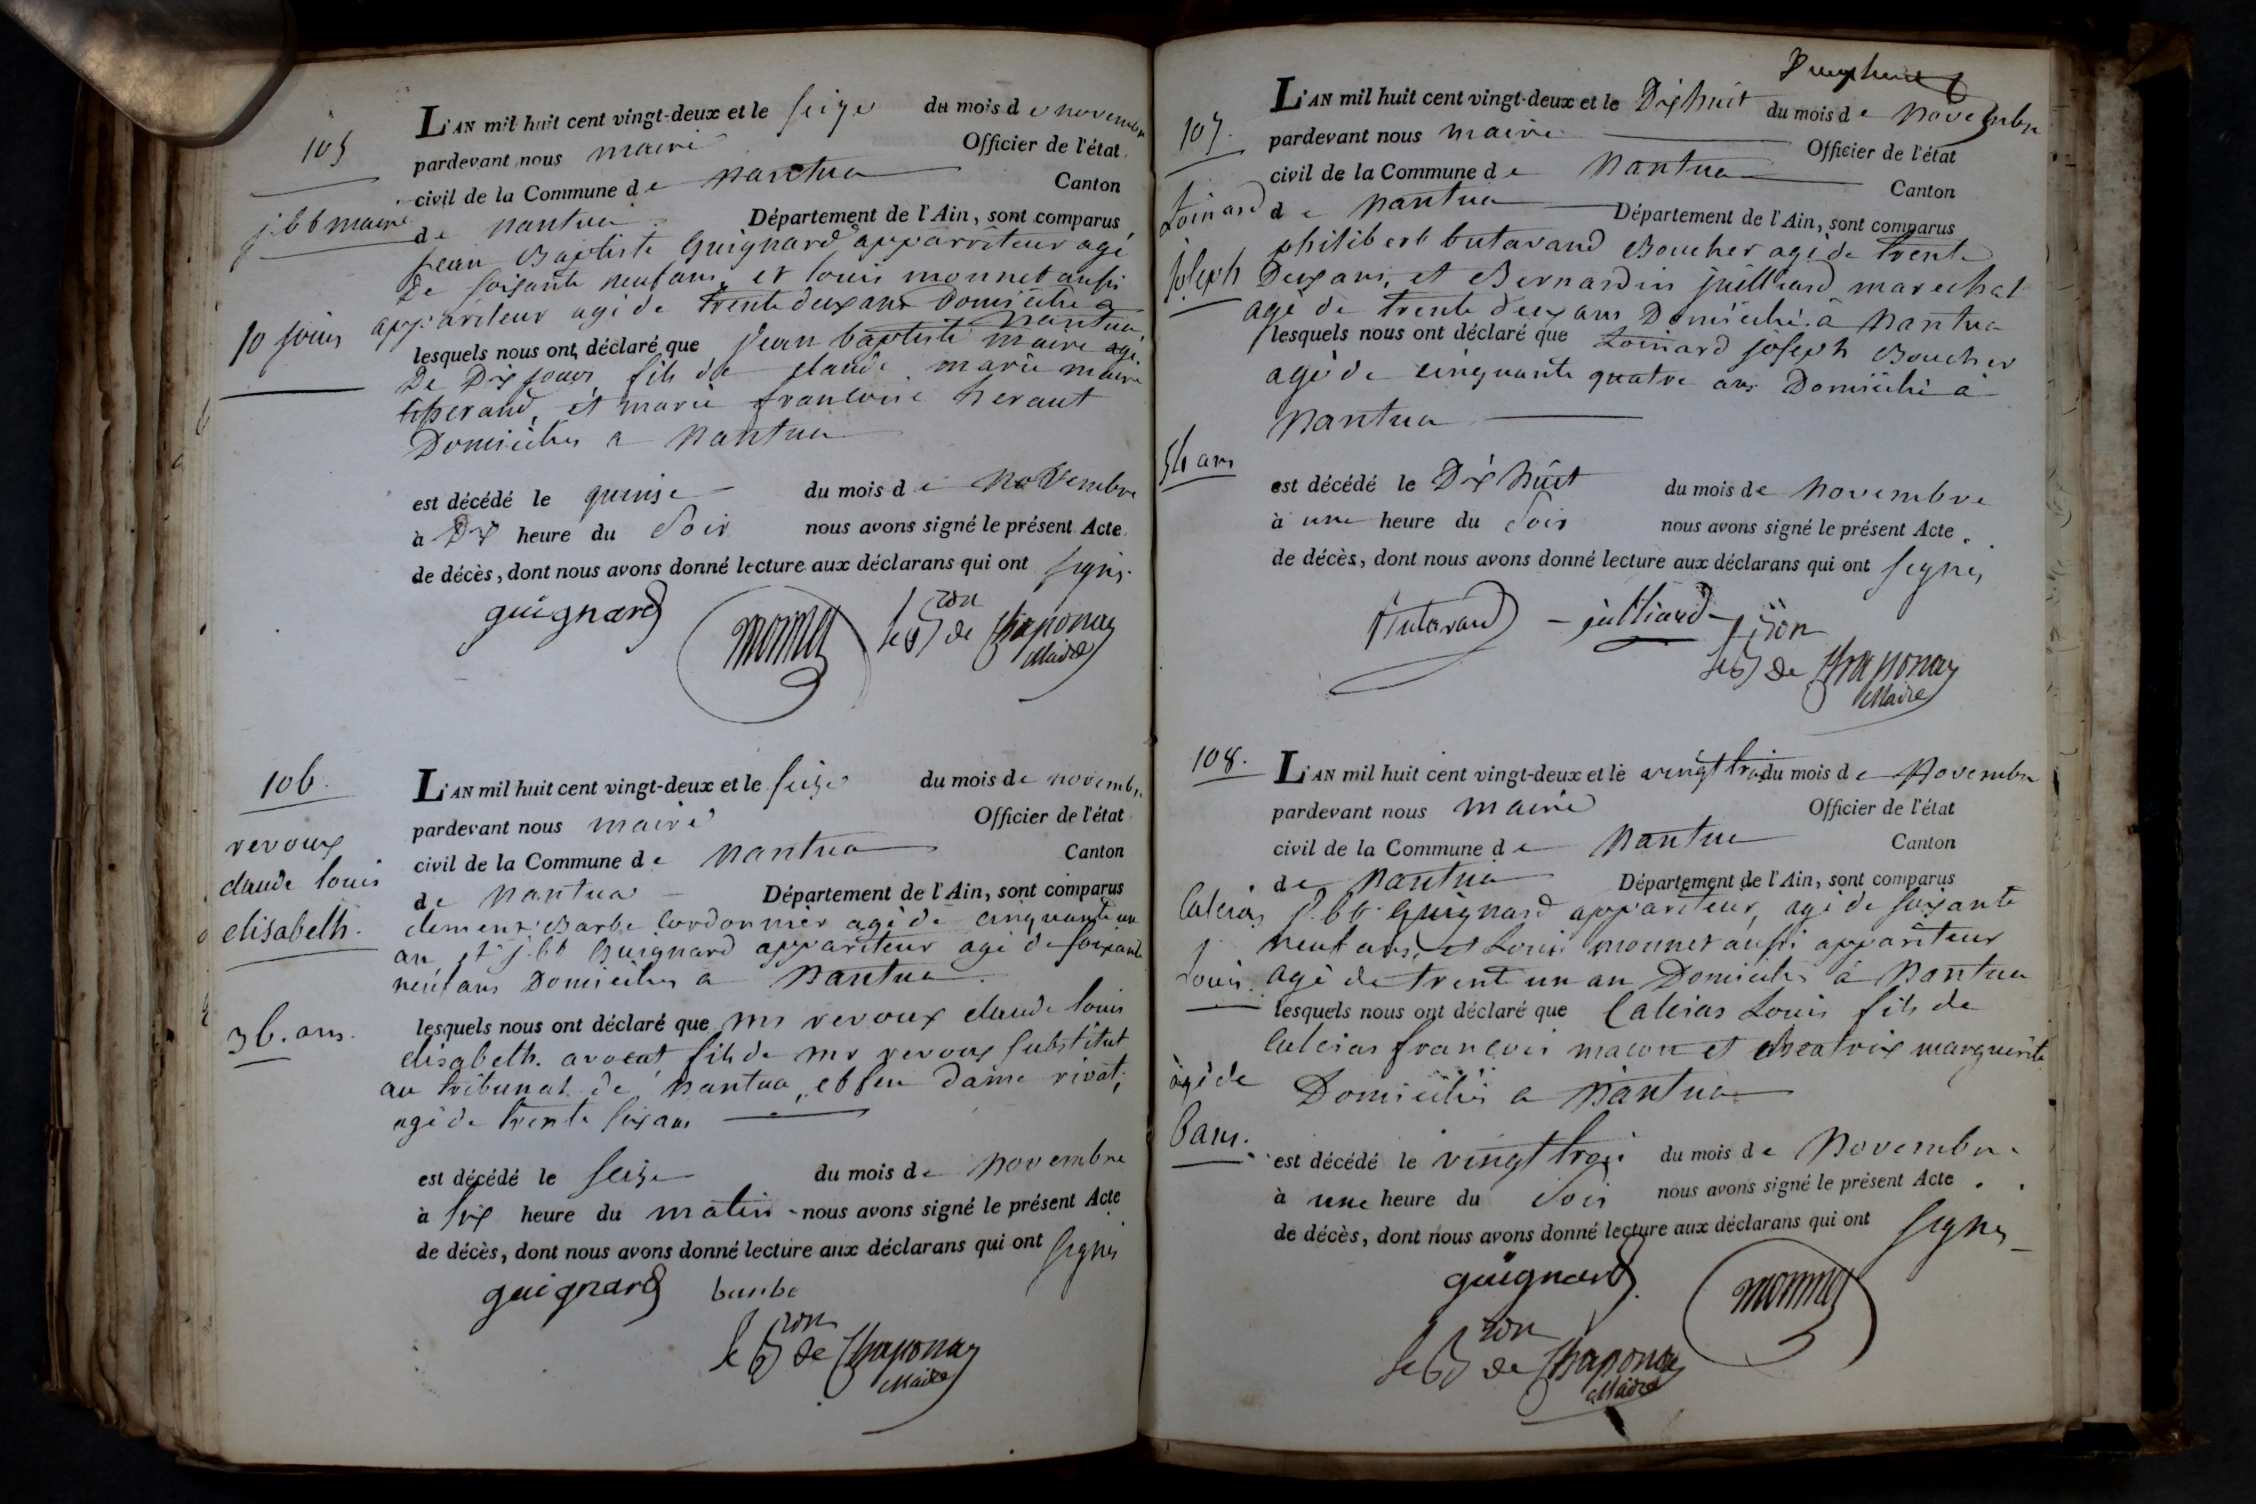 105
j. bb maire
10 jours
L'AN mil huit cent vingt-deux et le seize du mois de novembre
pardevant nous maire Officier de l'état
civil de la Commune de nantua Canton
de nantua Département de l'Ain, sont comparus
jean Baptiste Guignard appariteur agé
de soixante neuf ans, et louis monnet aussi
appariteur agé de trente deux ans Domiciliés a
nantua
lesquels nous ont déclaré que jean baptiste maire agé
De Dix jours, fils de claude marie maire
tisserand, et marie francoise heraut
Domiciliés a nantua
est décédé le quinze du mois de novembre
à Dix heure du soir nous avons signé le présent Acte
de décès, dont nous avons donné lecture aux déclarans qui ont signés.
guignard monnet le Bon de Chaponay
Maire
106.
revoux
claude louis
elisabeth.
36. ans.
L'AN mil huit cent vingt-deux et le seize du mois de novembre
pardevant nous maire Officier de l'état
civil de la Commune de nantua Canton
de nantua Département de l'Ain, sont comparus
clement Barbe Cordonnier agé de cinquante un
an et j. bb Guignard appariteur agé de soixante
neuf ans Domiciliés a nantua
lesquels nous ont déclaré que mr revoux claude louis
elisabeth. avocat, fils de mr revoux substitut
au tribunal de nantua, et feu dame rivat,
agé de trente six ans
est décédé le seize du mois de novembre
à six heure du matin nous avons signé le présent Acte
de décès, dont nous avons donné lecture aux déclarans qui ont signés
guignard barbe
le Bon de Chaponay
Maire
107.
Loinard
joseph
54 ans
L'AN mil huit cent vingt-deux et le Dix huit du mois de novembre
pardevant nous maire Officier de l'état
civil de la Commune de nantua Canton
de nantua Département de l'Ain, sont comparus
philibert butavand Boucher agé de trente
Deux ans, et Bernardin juilliard marechal
agé de trente deux ans Domiciliés à nantua
lesquels nous ont déclaré que Loinard joseph Boucher
agé de cinquante quatre ans Domicilié à
nantua
est décédé le Dix huit du mois de novembre
à une heure du soir nous avons signé le présent Acte
de décès, dont nous avons donné lecture aux déclarans qui ont signés
Butavand juilliard
le Bon de Chaponay
Maire
108.
Louis
âgé de
6 ans.
L'AN mil huit cent vingt-deux et le vingt trois du mois de novembre
pardevant nous maire Officier de l'état
civil de la Commune de nantua Canton
de nantua Département de l'Ain, sont comparus
j. bb. Guignard appariteur, agé de soixante
neuf ans, et Louis monnet aussi appariteur
agé de trente un an Domiciliés à nantua
lesquels nous ont déclaré que Calcias Louis fils de
Calcias francois macon et Beatrix marguerite
Domiciliés a nantua
est décédé le vingt trois du mois de novembre
à une heure du soir nous avons signé le présent Acte
de décès, dont nous avons donné lecture aux déclarans qui ont signés
guignard monnet
le Bon de Chaponay
Maire